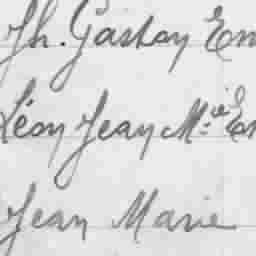 Th. Gaston Em
Léon Jean M.ie Em
Jean Marie